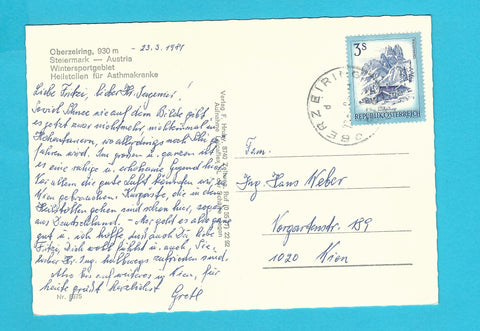 Oberzeiring, 930 m
Steiermark — Austria
Wintersportgebiet
Heilstollen für Asthmakranke
- 23.3.1981
Liebe Fritzi, lieber Hr. Ingenieur!
Soviel Schnee wie auf dem Bilde gibt
es jetzt zwar nicht mehr, nicht einmal in
Hohentauern, wo allerdings noch Ski ge-
fahren wird. Im großen u. ganzen ist
es eine ruhige u. erholsame Gegend hier.
Vor allem die gute Luft könnten wir in
Wien gebrauchen. Kurgäste, die in den
Heilstollen gehen sind schon hier, sogar
aus Deutschland. - Mir geht es also ganz
gut u. ich hoffe daß auch Du, liebe
Fritzi, Dich wohl fühlst u. auch, Sie,
lieber Hr. Ing. halbwegs zufrieden sind.
Also bis auf weiteres in Wien, für
heute grüßt herzlichst
Gretl
Nr. 8175
Verlag F.
3 S
REPUBLIK ÖSTERREICH
OBERZEIRING
Fam.
Ing. Hans Weber
Vorgartenstr. 189
1020 Wien